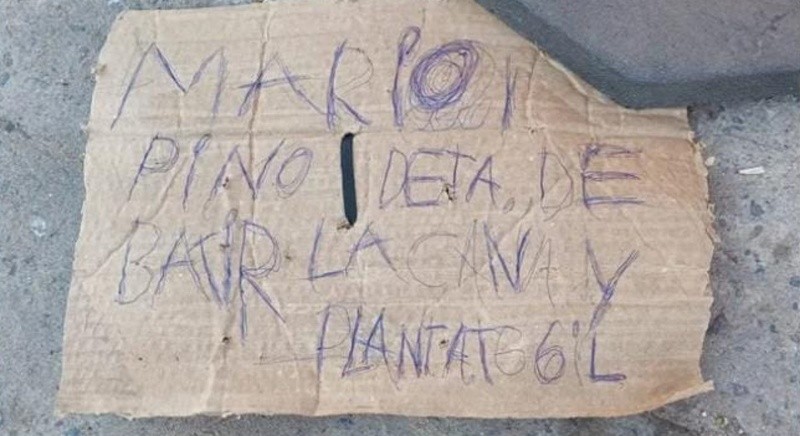 MARIO
PINO DETA, DE
BAIR LA CANA Y
PLANTAT GIL